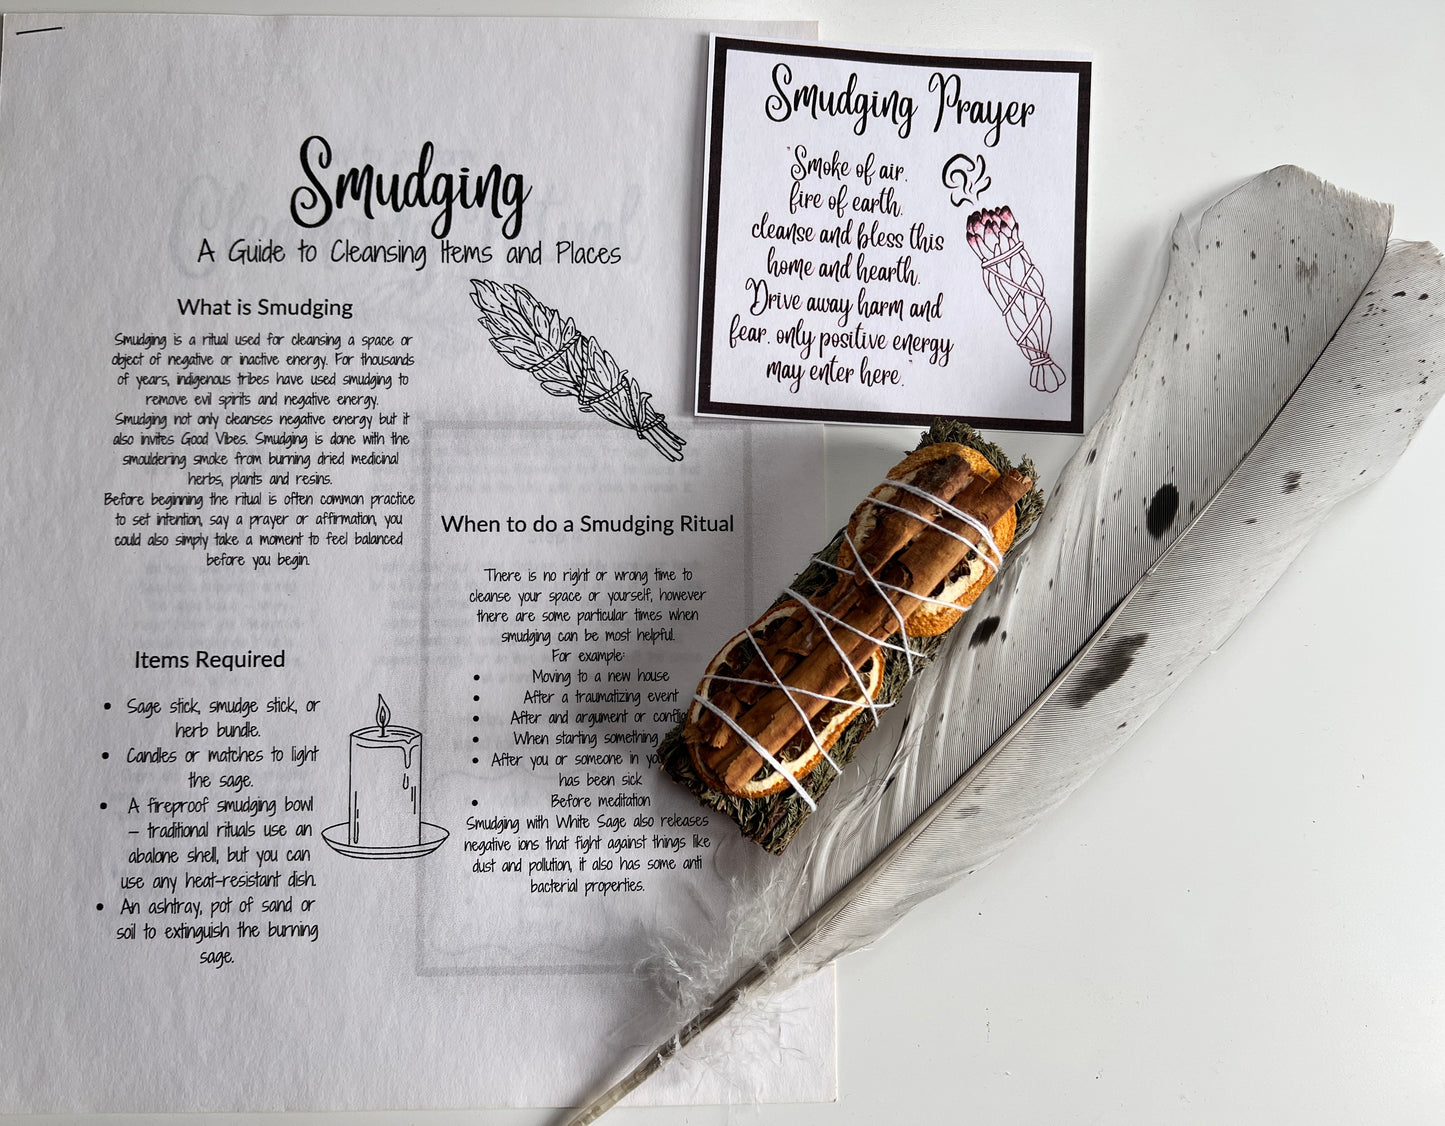 Smudging
A Guide to Cleansing Items and Places
What is Smudging
Smudging is a ritual used for cleansing a space or
object of negative or inactive energy. For thousands
of years, indigenous tribes have used smudging to
remove evil spirits and negative energy.
Smudging not only cleanses negative energy but it
also invites Good Vibes. Smudging is done with the
smouldering smoke from burning dried medicinal
herbs, plants and resins.
Before beginning the ritual is often common practice
to set intention, say a prayer or affirmation, you
could also simply take a moment to feel balanced
before you begin.
Items Required
• Sage stick, smudge stick, or
herb bundle.
• Candles or matches to light
the sage.
• A fireproof smudging bowl
– traditional rituals use an
abalone shell, but you can
use any heat-resistant dish.
• An ashtray, pot of sand or
soil to extinguish the burning
sage.
When to do a Smudging Ritual
There is no right or wrong time to
cleanse your space or yourself, however
there are some particular times when
smudging can be most helpful.
For example:
• Moving to a new house
• After a traumatizing event
• After and argument or
• When starting something
• After you or someone in
has been sick
• Before meditation
Smudging with White Sage also releases
negative ions that fight against things like
dust and pollution, it also has some anti
bacterial properties.
Smudging Prayer
"Smoke of air,
fire of earth,
cleanse and bless this
home and hearth.
Drive away harm and
fear, only positive energy
may enter here."